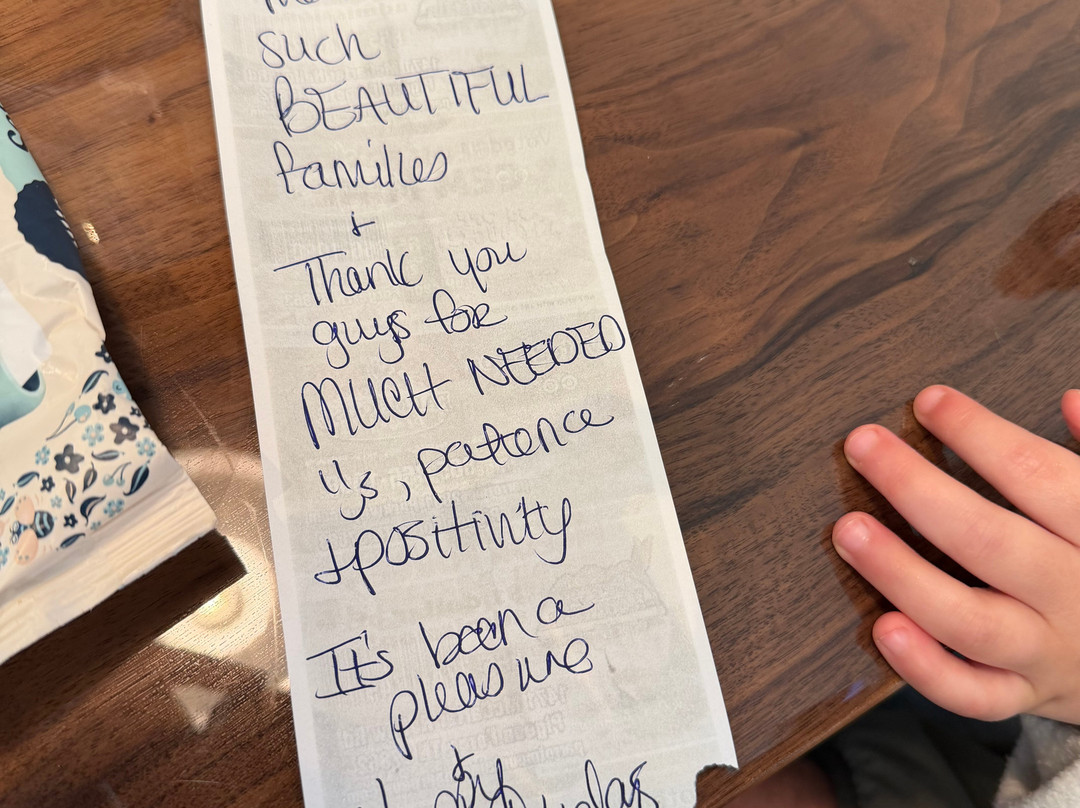 such
BEAUTIFUL
families
+
Thank you
guys for
MUCH NEEDED
, patience
+ positivity
It's been a
pleasure
+